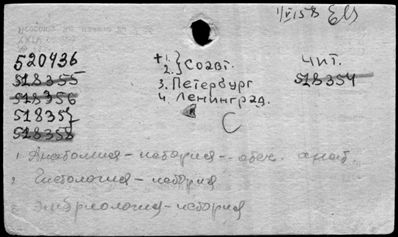 1/VI 58
520436
518355
518356
518357
518358
+ 1. } Соавт.
2.
3. Петербург
4. Ленинград.
С
чит.
518354
1. Анатомия - история - отеч. анат.
2. Гистология - история
3. Эмбриология - история